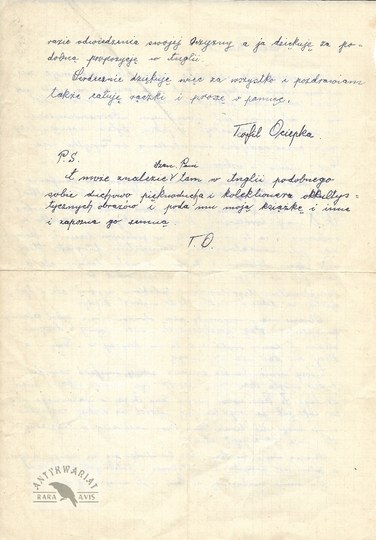 razie odwiedzenia swojej Ojczyzny a ja dziękuję za po-
dobną propozycję w Anglii.
Serdecznie dziękuję więc za wszystko i pozdrawiam
także całuję rączki i proszę o pamięć.
Teofil Ociepka.
P.S.
Szan. Pani
A może znalezie tam w Anglii podobnego
sobie duchowo pięknoducha i kolekcjonera okkultys-
tycznych obrazów i poda mu moją książkę i inne
i zapozna go ze mną.
T. O.
ANTYKWARIAT
RARA AVIS